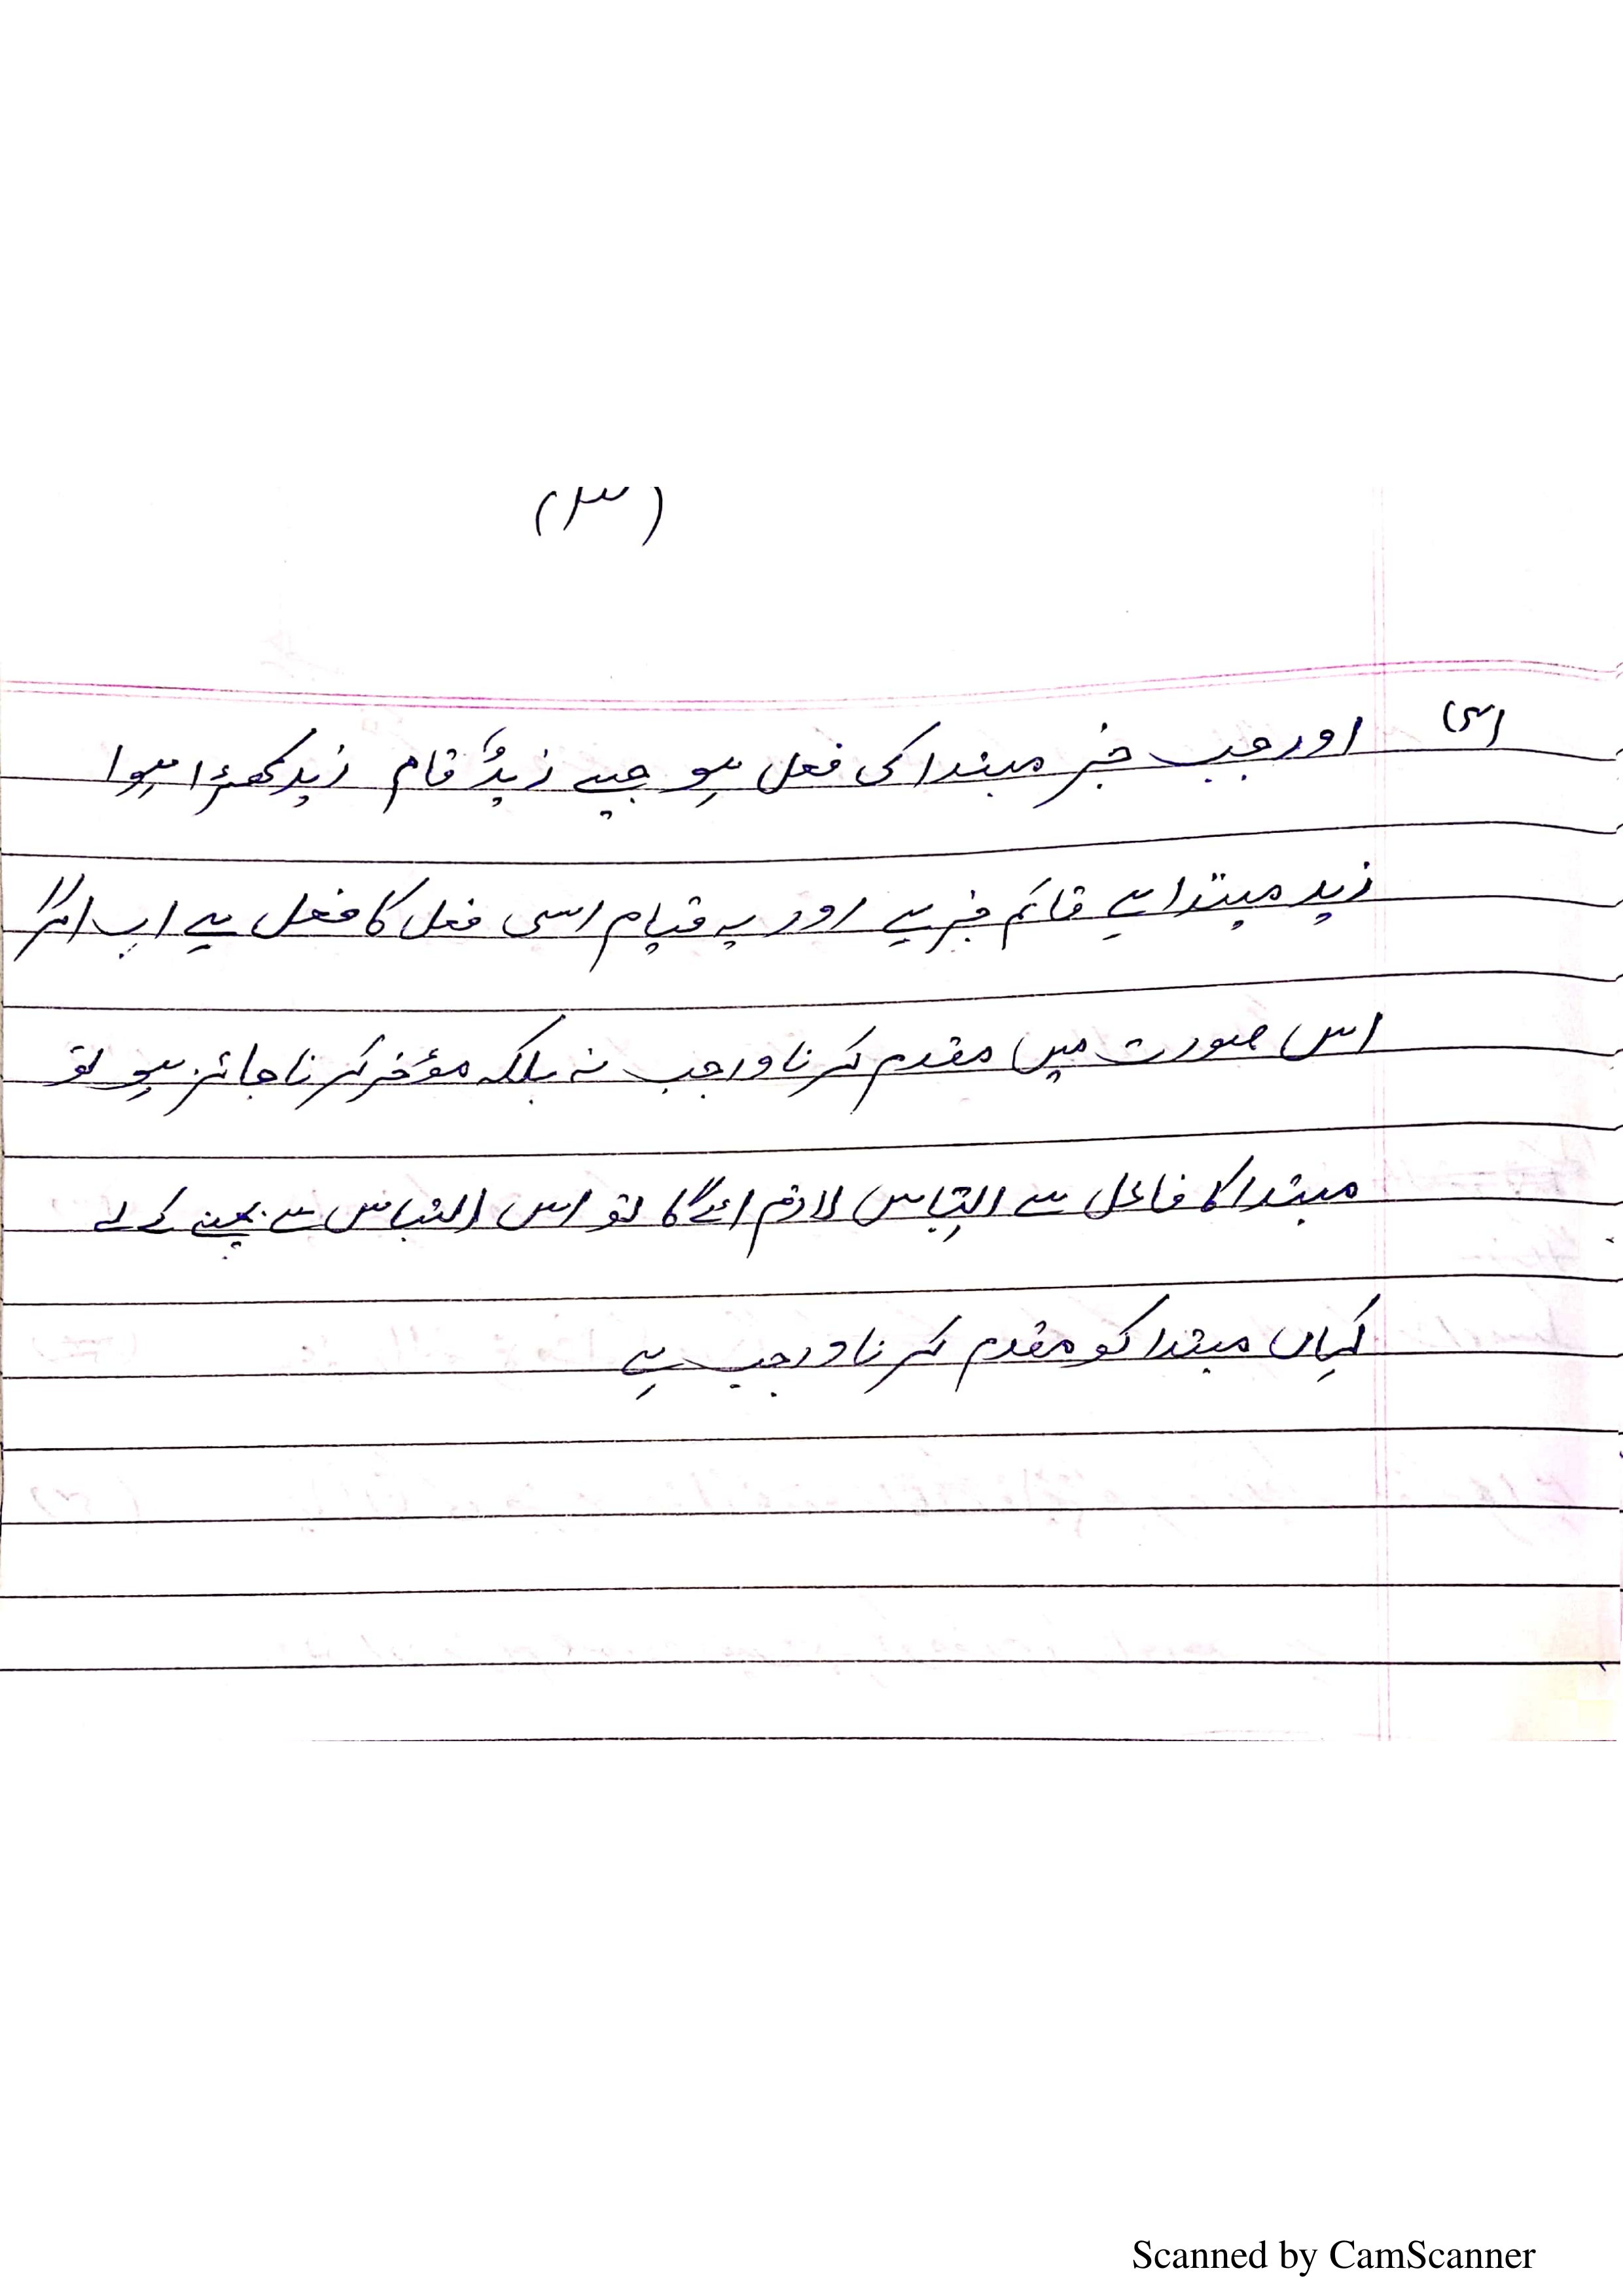 (۳)
(۴) اور جب خبر مبتدا کی فعل ہو جیسے زیدٌ قام زید کھڑا ہوا
زید مبتدا ہے قائم خبر ہے اور یہ قیام اسی فعل کا فعل ہے اب اگر
اس صورت میں مقدم کرنا واجب نہ بلکہ مؤخر کرنا جائز ہو تو
مبتدا کا فاعل سے التباس لازم ائے گا تو اس التباس سے بچنے کے لے
یہاں مبتدا کو مقدم کرنا واجب ہے
Scanned by CamScanner